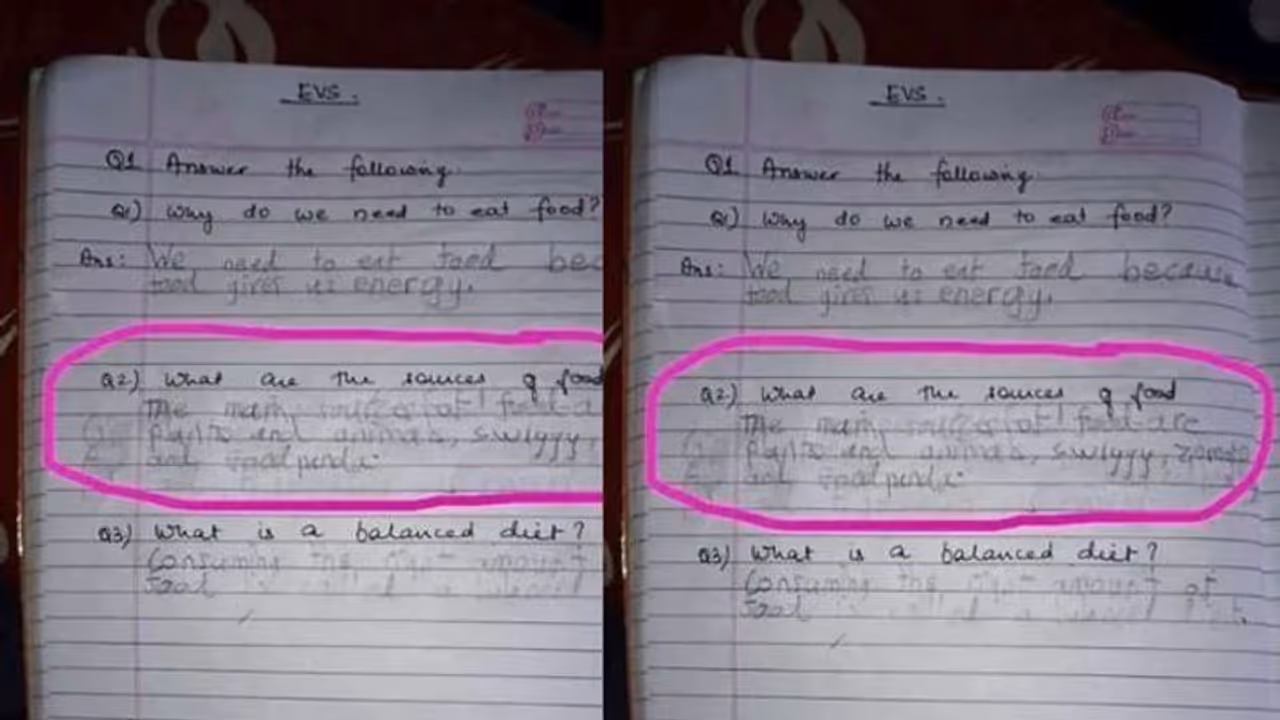 EVS.
Q1 Answer the following
Q1) Why do we need to eat food?
Ans: We need to eat food bec
food gives us energy.
Q2) What are the sources of food
The main of food a
plants and animals, swigyy,
and foodpenda.
Q3) What is a balanced diet?
Consuming the right amount
food
EVS.
Q1 Answer the following
Q1) Why do we need to eat food?
Ans: We need to eat food because
food gives us energy.
Q2) What are the sources of food
The main of food are
plants and animals, swigyy, zomato
and foodpenda.
Q3) What is a balanced diet?
Consuming the right amount of
food